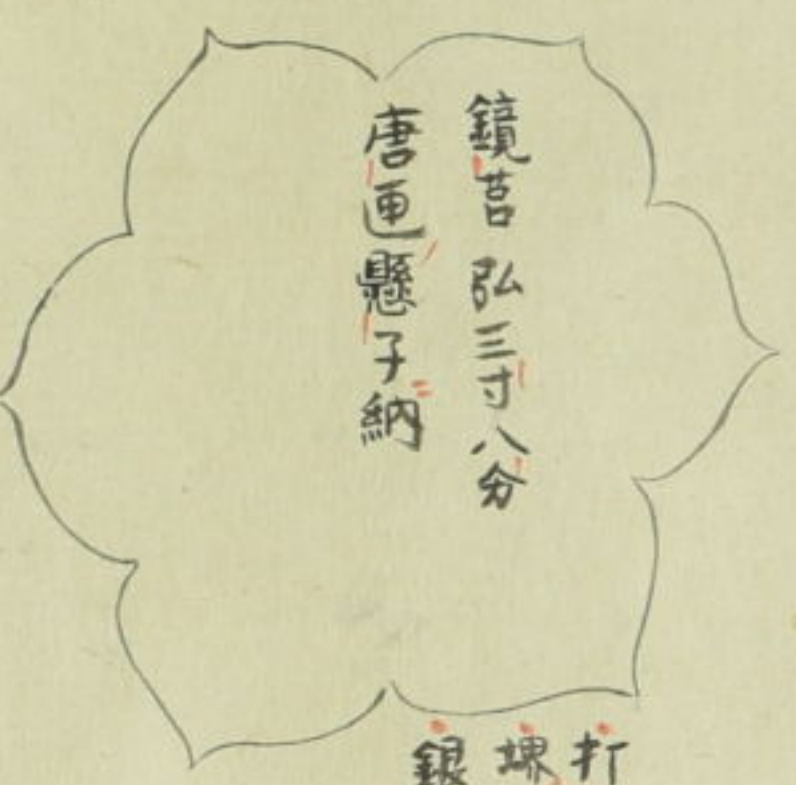 鏡莒 弘三寸八分
唐匣懸子納
打
堺
銀